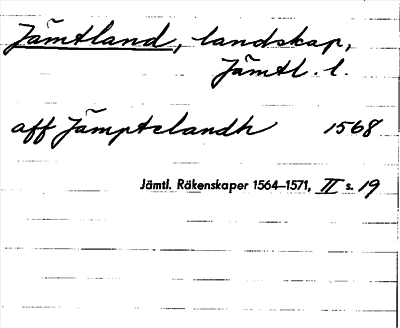 Jämtland, landskap,
Jämtl. l.
aff Jämptelandh 1568
Jämtl. Räkenskaper 1564–1571, II s. 19